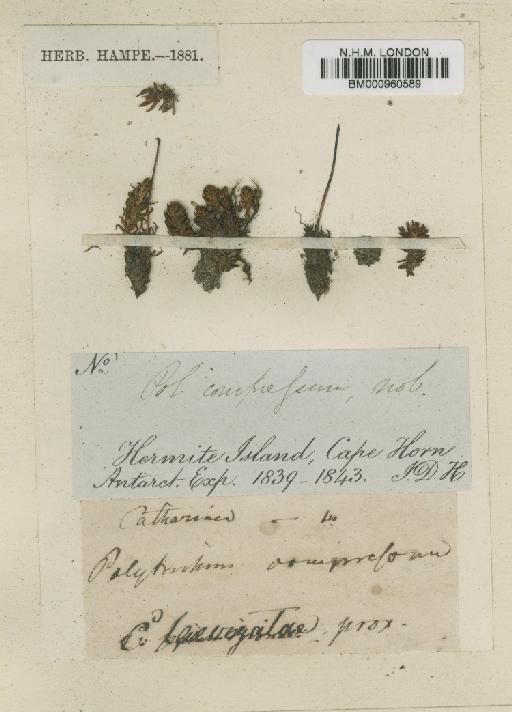 HERB. HAMPE.—1881.
N.H.M. LONDON
BM000960589
No.
Pol. compressum, nob.
Hermite Island, Cape Horn
Antarct. Exp. 1839–1843. J.D.H
Catharinea –
Polytrichum compressum
C. laevigatae prox.